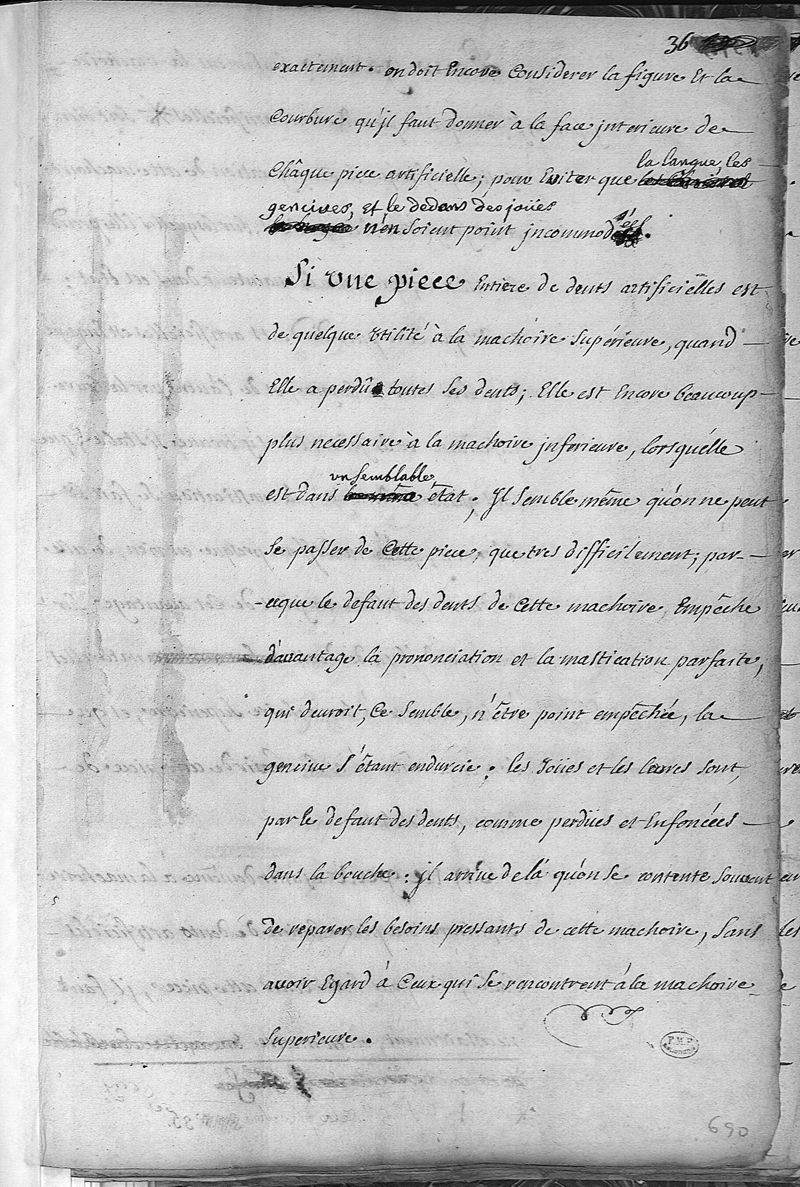 36
exactement. on doit Encore Considerer la figure Et la
Courbure qu'jl faut donner à la face jnterieure de
Châque piece artificiélle; pour Eviter que la langue, les
gencives, et le dedans des joües
n'en soient point jncommodées.
Si vne piece Entiere de dents artificiélles est
de quelque Vtilité à la machoire Supérieure, quand
Elle a perdû toutes ses dents; Elle est Encore beaucoup
plus necessaire à la machoire jnferieure, lorsqu'elle
est dans vn semblable état; Jl semble même qu'on ne peut
se passer de Cette piece, que tres difficilement; par-
-ceque le defaut des dents de Cette machoire, Empêche
d'avantage la prononciation et la mastication parfaite,
qui devroit, Ce semble, n'être point empêchée, la
gencive s'étant endurcie; les Joües et les levres sont,
par le defaut des dents, comme perdües et Enfoncées
dans la bouche: jl arrive de là qu'on se contente souvent
de reparer les besoins pressants de cette machoire, sans
avoir Egard à Ceux qui se rencontrent à la machoire
superieure.
690